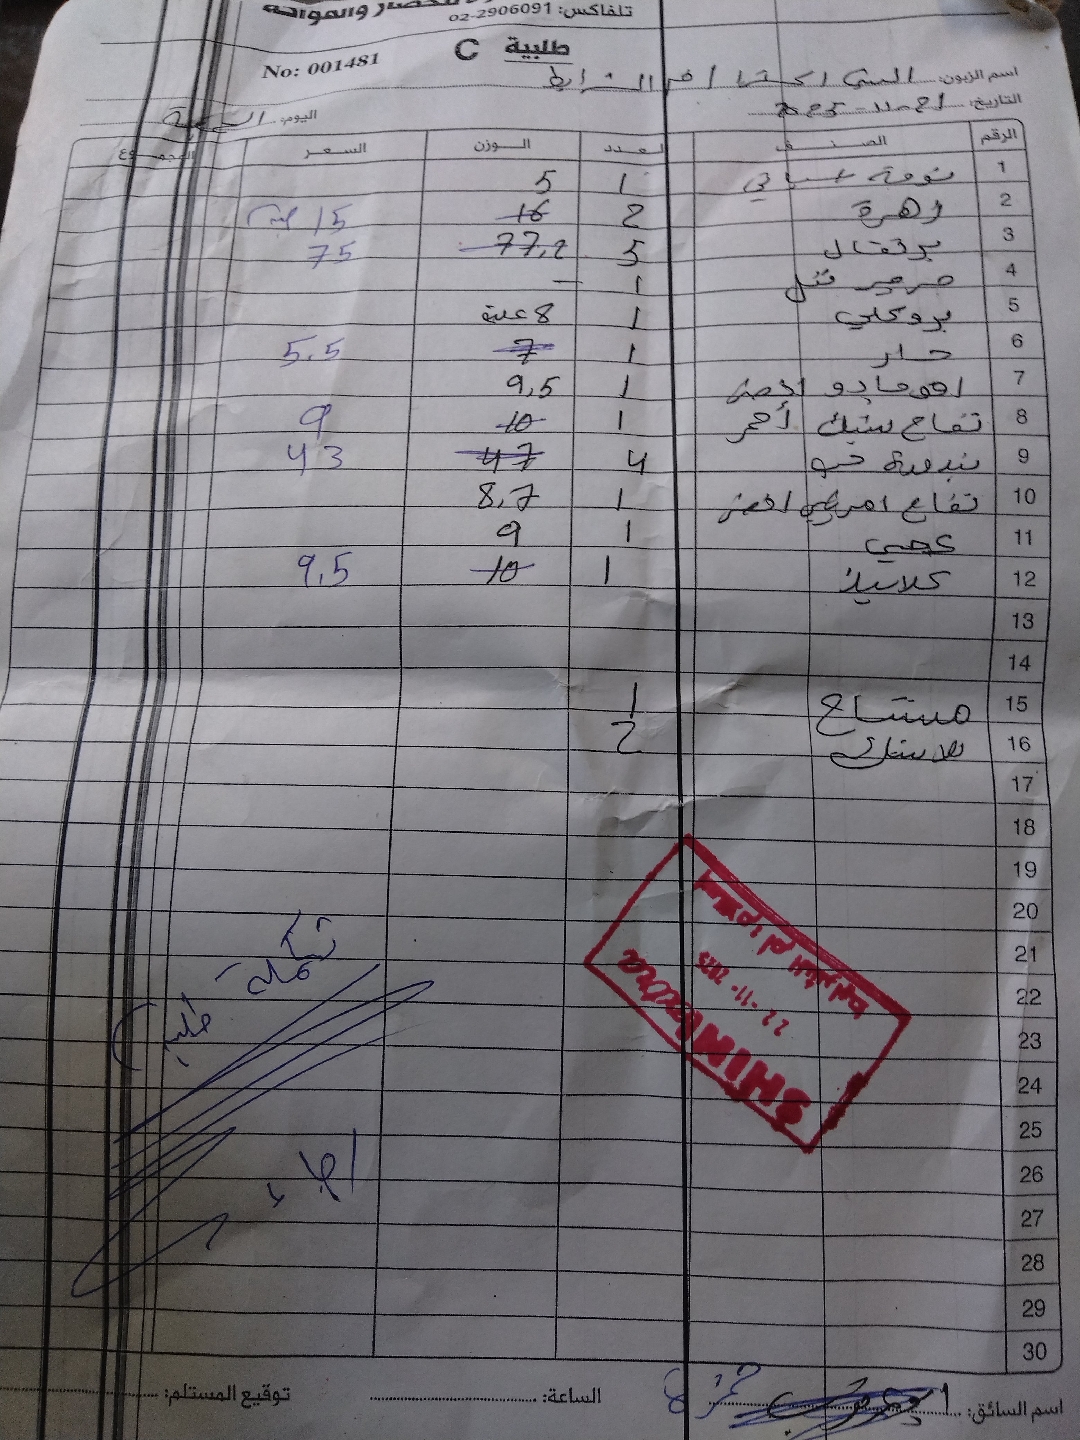 للخضار والفواكه
تلفاكس: 02-2906091
طلبية C
No: 001481
اسم الزبون:
التاريخ: 21-11-2025
اليوم:
الرقم الصنف العدد الوزن السعر المجموع
1 ثومة 1 5
2 زهرة 2 16 15
3 برتقال 5 77,2 75
4 جرجير 1 -
5 بروكلي 1 8 علبة
6 حار 1 7 5.5
7 افوكادو اخضر 1 9,5
8 تفاح ستيك أحمر 1 10 9
9 بندورة 4 47 43
10 تفاح امريكي اخضر 1 8,7
11 عجمي 1 9
12 كلابيلا 1 10 9.5
13
14
15 مشتاح 1
16 بلاستيك 2
17
18
19
20
21
22
23
24
25
26
27
28
29
30
تكملة
SHINI Extra
22-11-2025
اسم السائق:
الساعة:
توقيع المستلم: